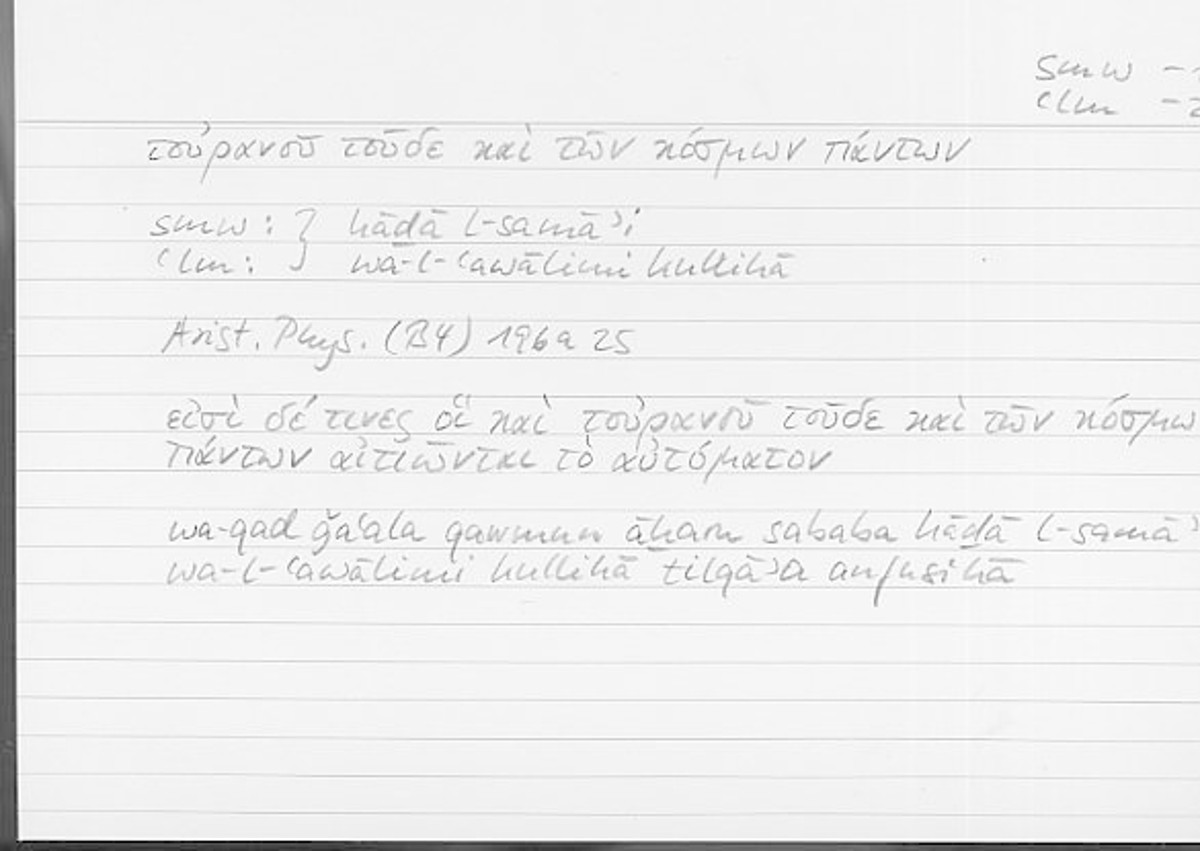 smw –
ʿlm –
τοὐρανοῦ τοῦδε καὶ τῶν κόσμων πάντων
smw : } hāḏā l-samāʾi
ʿlm : wa-l-ʿawālimi kullihā
Arist. Phys. (B4) 196a 25
εἰσὶ δέ τινες οἳ καὶ τοὐρανοῦ τοῦδε καὶ τῶν κόσμω
πάντων αἰτιῶνται τὸ αὐτόματον
wa-qad ǧaʿala qawmun āḫarū sababa hāḏā l-samāʾ
wa-l-ʿawālimi kullihā tilqāʾa anfusihā